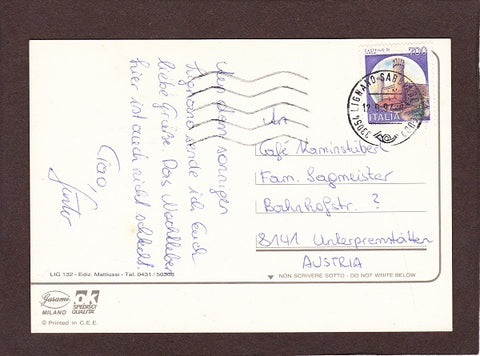 Von dem sonnigen
Lignano sende ich Euch
liebe Grüße. Das Nachtleben
hier ist auch nicht schlecht
Ciao,
Günter
700
ITALIA
33054 LIGNANO SABBIADORO (UD)
An
Café Kaminstüberl
Fam. Sagmeister
Bahnhofstr. ?
8141 Unterpremstätten
AUSTRIA
LIG 132 - Ediz. Mattiussi - Tel. 0431 / 50308
NON SCRIVERE SOTTO - DO NOT WRITE BELOW
Garami
MILANO
SPEDISCI
QUALITA'
© Printed in C.E.E.